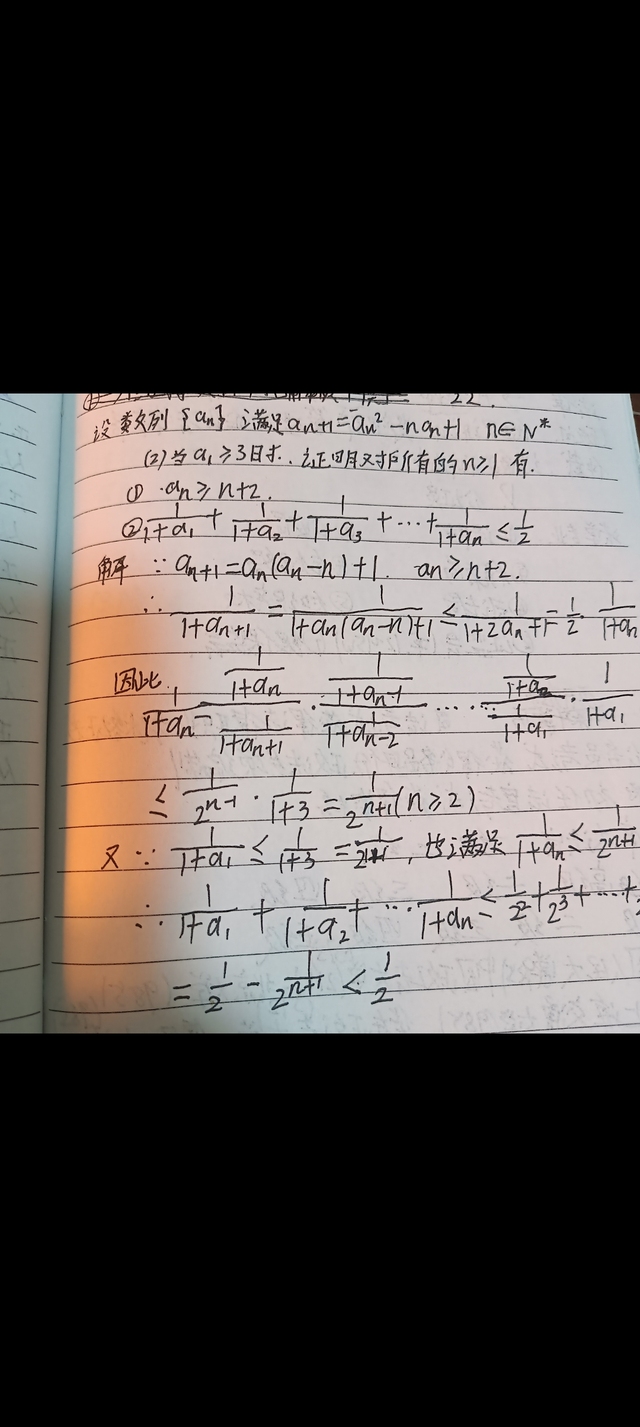 22.
设数列{aₙ}满足aₙ₊₁=aₙ²-naₙ+1 n∈N*
(2)当a₁≥3时. 证明对所有的n≥1有.
① aₙ≥n+2.
② 1/(1+a₁) + 1/(1+a₂) + 1/(1+a₃) + ⋯ + 1/(1+aₙ) ≤ 1/2
解 ∵ aₙ₊₁=aₙ(aₙ-n)+1. aₙ≥n+2.
∴ 1/(1+aₙ₊₁) = 1/(1+aₙ(aₙ-n)+1) ≤ 1/(1+2aₙ+1) = 1/2 · 1/(1+aₙ
因此 1/(1+aₙ) = (1/(1+aₙ))/(1/(1+aₙ₊₁)) · (1/(1+aₙ₋₁))/(1/(1+aₙ₋₂)) ⋯⋯ (1/(1+a₂))/(1/(1+a₁)) · 1/(1+a₁)
≤ 1/2ⁿ⁻¹ · 1/(1+3) = 1/2ⁿ⁺¹ (n≥2)
又∵ 1/(1+a₁) ≤ 1/(1+3) = 1/2¹⁺¹, 也满足 1/(1+aₙ) ≤ 1/2ⁿ⁺¹
∴ 1/(1+a₁) + 1/(1+a₂) + ⋯ 1/(1+aₙ) ≤ 1/2² + 1/2³ + ⋯ +
= 1/2 - 1/2ⁿ⁺¹ < 1/2